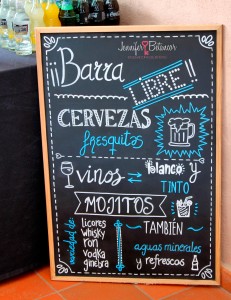 Jennifer & Baltasar
¡¡Barra
LIBRE!!
CERVEZAS
fresquitas
vinos blanco y
TINTO
MOJITOS
variedad de
licores
whisky
ron
vodka
ginebra
TAMBIÉN
aguas minerales
y refrescos